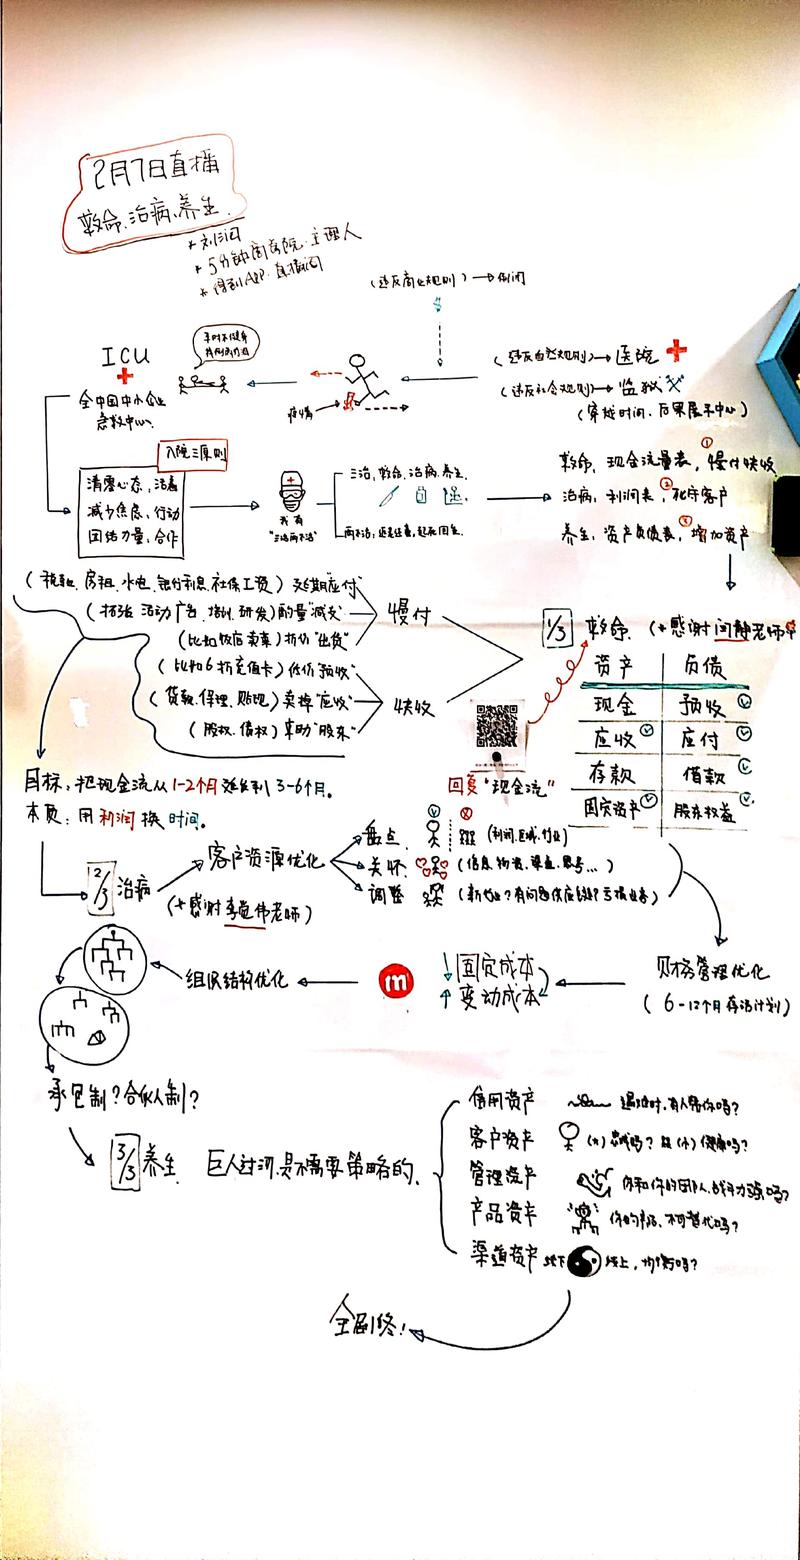 2月7日直播
救命.治病.养生.
* 刘润
* 5分钟商学院.主理人
* 得到App.直播间
(违反商业规则)→倒闭
ICU
全中国中小企业
急救中心.
疫情
(违反自然规则)→医院
(违反社会规则)→监狱
(穿越时间、后果展示中心)
入院三原则
清零心态,活着
减少焦虑,行动
团结力量,合作
我有
"三治两不治"
三治,救命.治病.养生.
两不治:
救命,现金流量表,①慢付快收
治病,利润表,②死守客户
养生,资产负债表,③增加资产
(税款.房租.水电.银行利息.社保工资)延期"应付"
(扩张.活动广告.培训.研发)酌量"减支"
(比如饭店卖菜)折价"出货"
慢付
(比如6折充值卡)低价"预收"
(贷款.保理.贴现)卖掉"应收"
(股权.债权)求助"股东"
快收
1/3 救命.(+感谢闫静老师)
资产 负债
现金 预收
应收 应付
存款 借款
固定资产 股东权益
回复"现金流"
目标:把现金流从1-2个月延长到3-6个月。
本质:用利润换时间。
2/3 治病
(+感谢李道伟老师)
客户资源优化
盘点. (利润.区域.行业)
关怀.
调整
财务管理优化
(6-12个月存活计划)
↓固定成本
↑变动成本
m
组织结构优化
承包制?合伙人制?
3/3 养生. 巨人过河.是不需要策略的.
信用资产 遇难时,有人帮你吗?
客户资产 (大)忠诚吗? (小)健康吗?
管理资产 你和你的团队.战斗力强吗?
产品资产 你的产品.不可替代吗?
渠道资产 地下 线上,均衡吗?
全剧终!